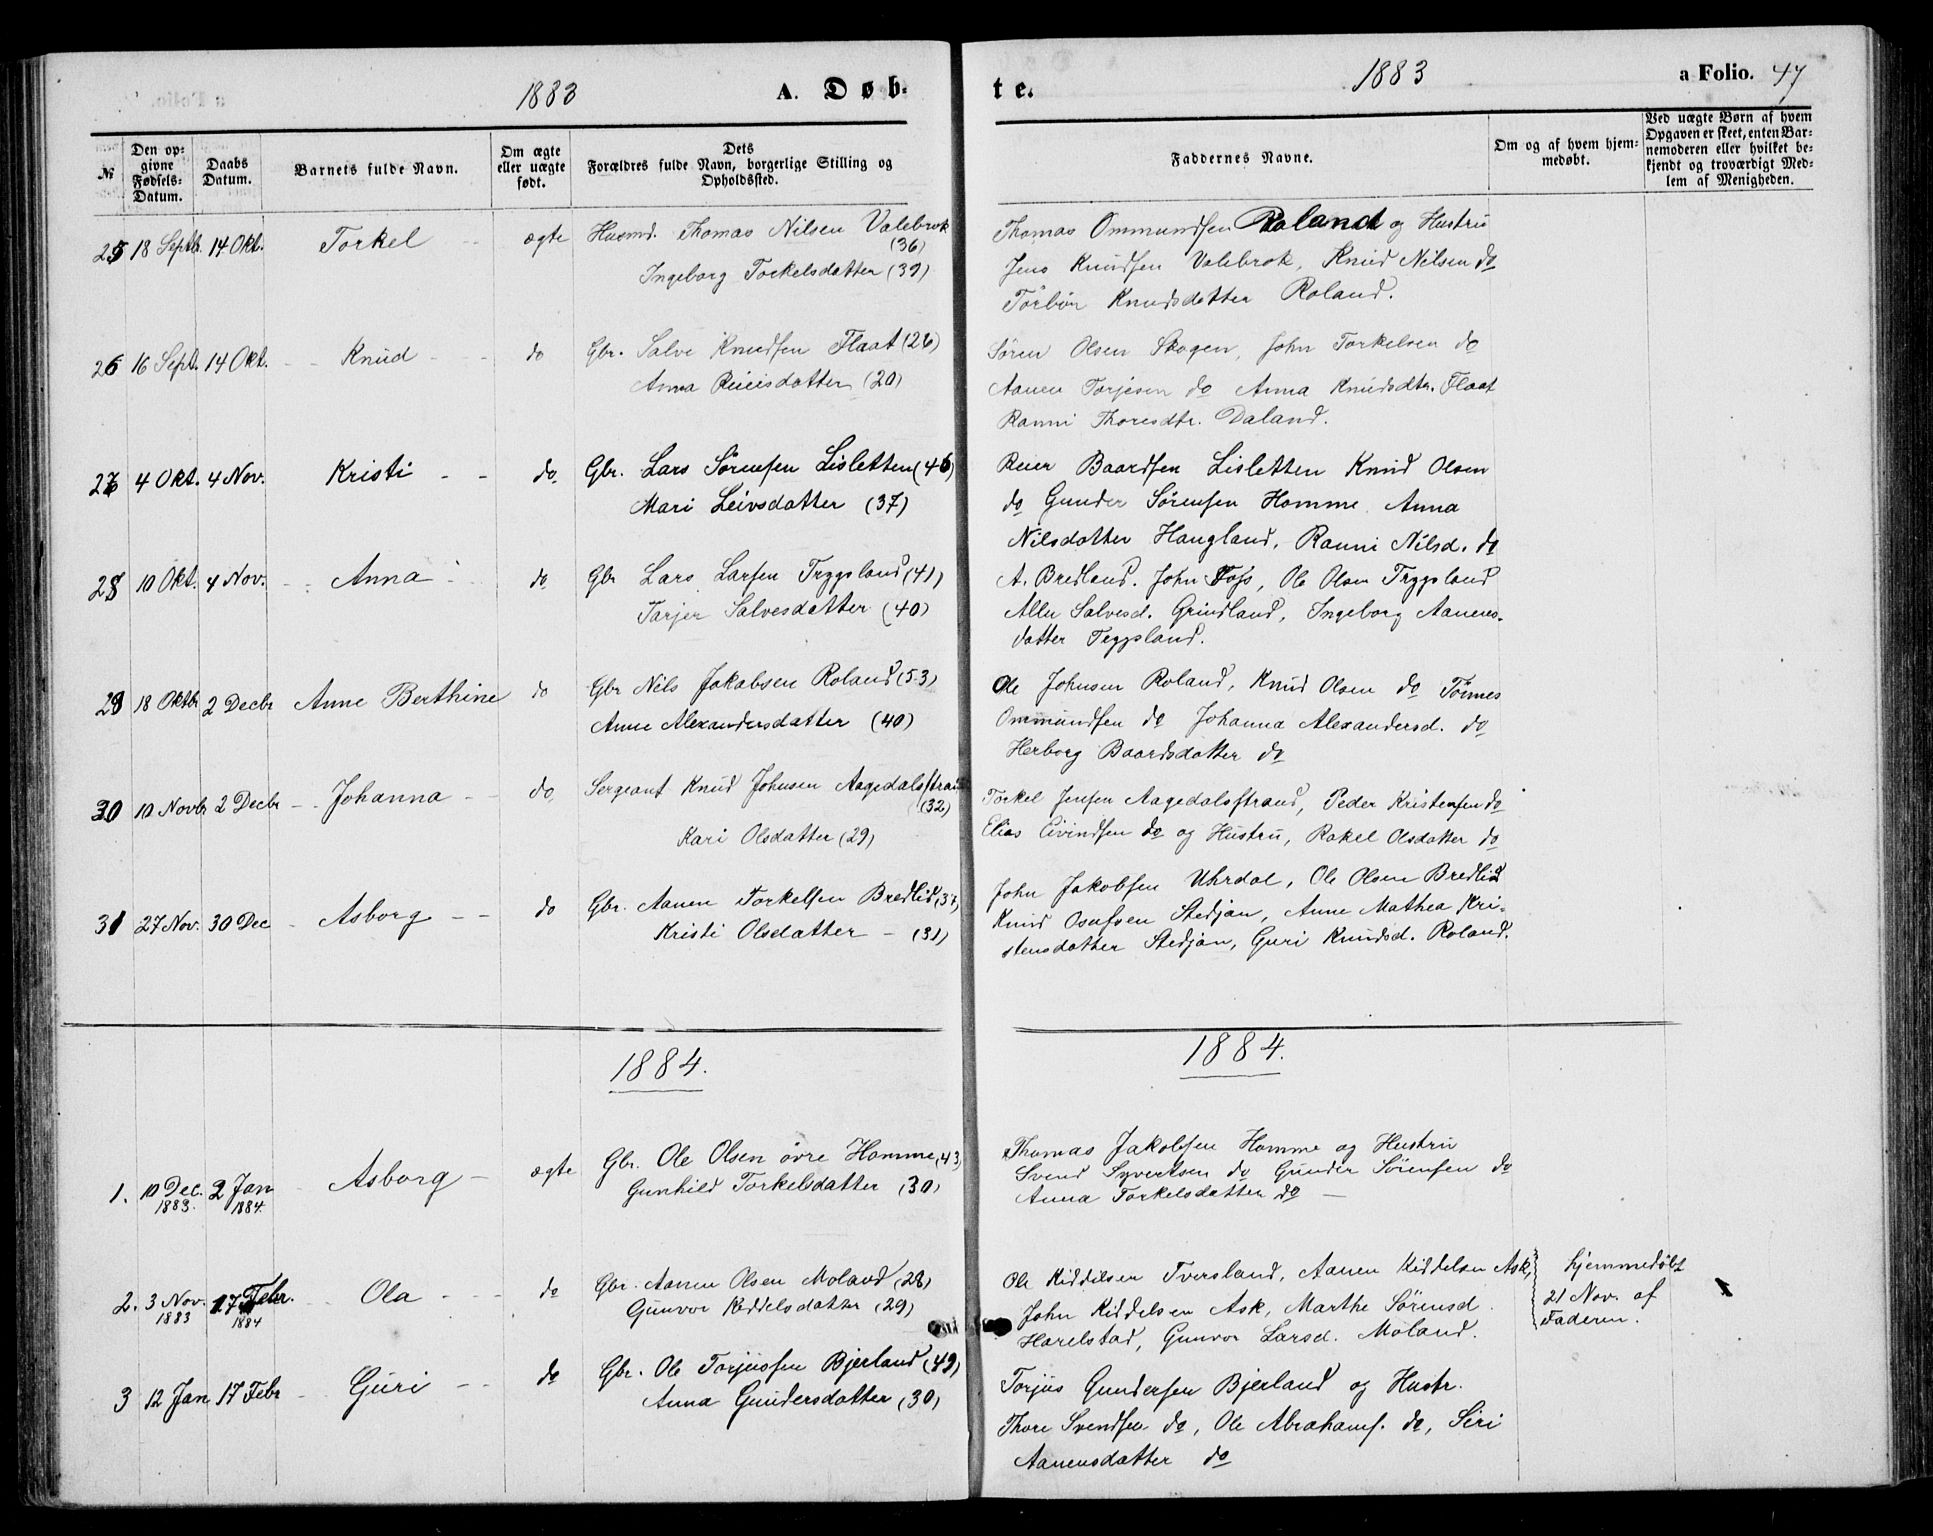 1883 A. Døb- te. 1883 a Folio. 47
№
Den op-
givne
Fødsels-
Datum.
Daabs
Datum.
Barnets fulde Navn.
Om ægte
eller uægte
født.
Dets
Forældres fulde Navn, borgerlige Stilling og
Opholdssted.
Faddernes Navne.
Om og af hvem hjem-
medøbt.
Ved uægte Børn af hvem
Opgaven er skeet, enten Bar-
nemoderen eller hvilket be-
kjendt og troværdigt Med-
lem af Menigheden.
25 18 Septb. 14 Okt. Torkel - - ægte Husmd. Thomas Nilsen Valebrok
(36)
Ingeborg Torkelsdatter (39)
Thomas Ommundsen Roland og Hustru
Jens Knudsen Valebrok, Knud Nilsen do
Torbor Knudsdatter Roland.
26 16 Sept. 14 Okt. - - Knud - - do Gbr. Salve Knudsen Flaat (26)
Anna Reiersdatter (20)
Søren Olsen Skogen, John Torkelsen do
Aanen Torjesen do Anna Knudsdtr. Flaat
Ranni Thoresdtr. Daland.
27 4 Okt. 4 Nov. Kristi - - do Gbr. Lars Sørensen Lisletten (46)
Mari Leivsdatter (37)
Reier Baardsen Lisletten Knud Olsen
do Gunder Sørensen Homme. Anna
Nilsdatter Haugland, Ranni Nilsd. do
28 10 Okt. 4 Nov. - - Anna - do Gbr Lars Larsen Trygsland (41)
Tarjer Salvesdatter (40)
A. Bredland. John Foss, Ole Olsen Trygsland
Allu Salvesd. Grindland, Ingeborg Aanens-
datter Trygsland.
29 18 Oktbr 2 Decbr Anne Berthine do Gbr Nils Jakobsen Roland (53)
Anne Alexandersdatter (40)
Ole Johnsen Roland, Knud Olsen do Tønnes
Ommundsen do Johanna Alexandersd. do
Herborg Baardsdatter do
30 10 Novbr 2 Decbr - - Johanna - - do, Sergeant Knud Johnsen Aagedalsstrand
(32)
Kari Olsdatter (29)
Torkel Jensen Aagedalsstrand, Peder Kristensen do
Elias Eivindsen do og Hustru, Rakel Olsdatter do
31 27 Nov. 30 Dec - Asborg - - do Gbr. Aanen Torkelsen Bredlid (37)
Kristi Olsdatter - (31)
John Jakobsen Uhrdal, Ole Olsen Bredlid
Knud Osufsen Stedjan, Anne Mathea Kri-
stensdatter Stedjan, Guri Knudsd. Roland.
1884. 1884.
1. 10 Dec. 2 Jan - Asborg - ægte Gbr. Ole Olsen øvre Homme (43)
1883. 1884. Gunhild Torkelsdatter (30)
Thomas Jakobsen Homme og Hustru
Svend Syvertsen do Gunder Sørensen do
Anna Torkelsdatter do -
2. 3 Nov. 17 Febr. - - Ola - - - do Gbr. Aanen Olsen Moland (28)
1883 1884 Gunvor Kiddelsdatter (29)
Ole Kiddelsen Tversland, Aanen Kiddelsen Ask,
John Kiddelsen Ask, Marthe Sørensd.
Harelstad, Gunvor Larsd. Moland.
hjemmedøbt
21 Nov. af
Faderen.
3 12 Jan 17 Febr - Guri - - do Gbr. Ole Torjussen Bjerland (49)
Anna Gundersdatter (30)
Torjus Gundersen Bjerland og Hustr.
Thore Svendsen do, Ole Abrahams. do, Siri
Aanensdatter do